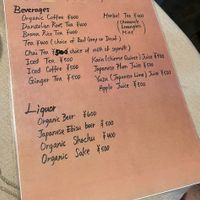 Beverages
Organic Coffee ¥600
Dandelion Root Tea ¥600
Brown Rice Tea ¥600
Tea ¥600 (choice of Earl Grey or Decaf)
Chai Tea choice of milk if separate
Iced Tea ¥500
Iced Coffee ¥500
Ginger Tea ¥500
Herbal Tea ¥600
(Chamomile
Mint)
Karin (Chinese Quince) Juice ¥500
Japanese Plum Juice ¥500
Yuzu (Japanese Lime) Juice ¥500
Apple Juice ¥500
Liquor
Organic Beer ¥600
Japanese Ebisu beer ¥500
Organic Shochu ¥400
Organic Sake ¥500